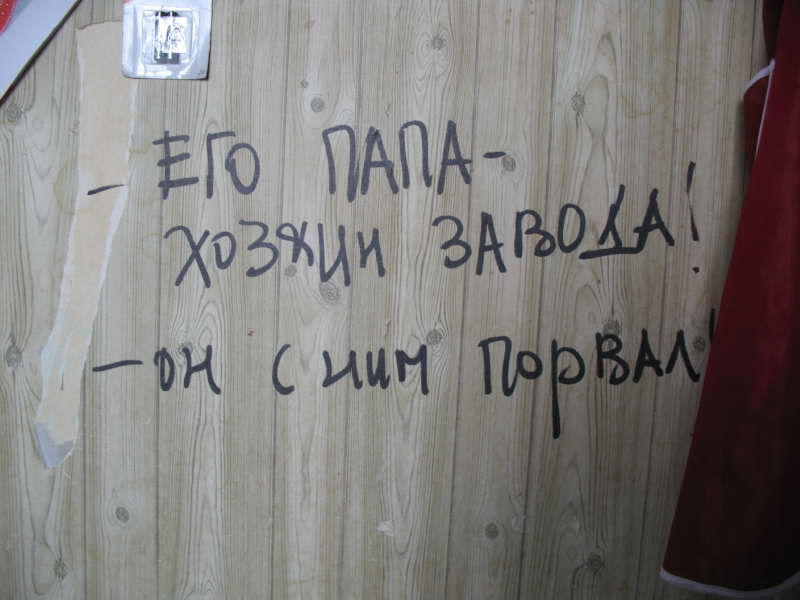 - ЕГО ПАПА-
ХОЗЯИН ЗАВОДА!
- ОН С НИМ ПОРВАЛ!